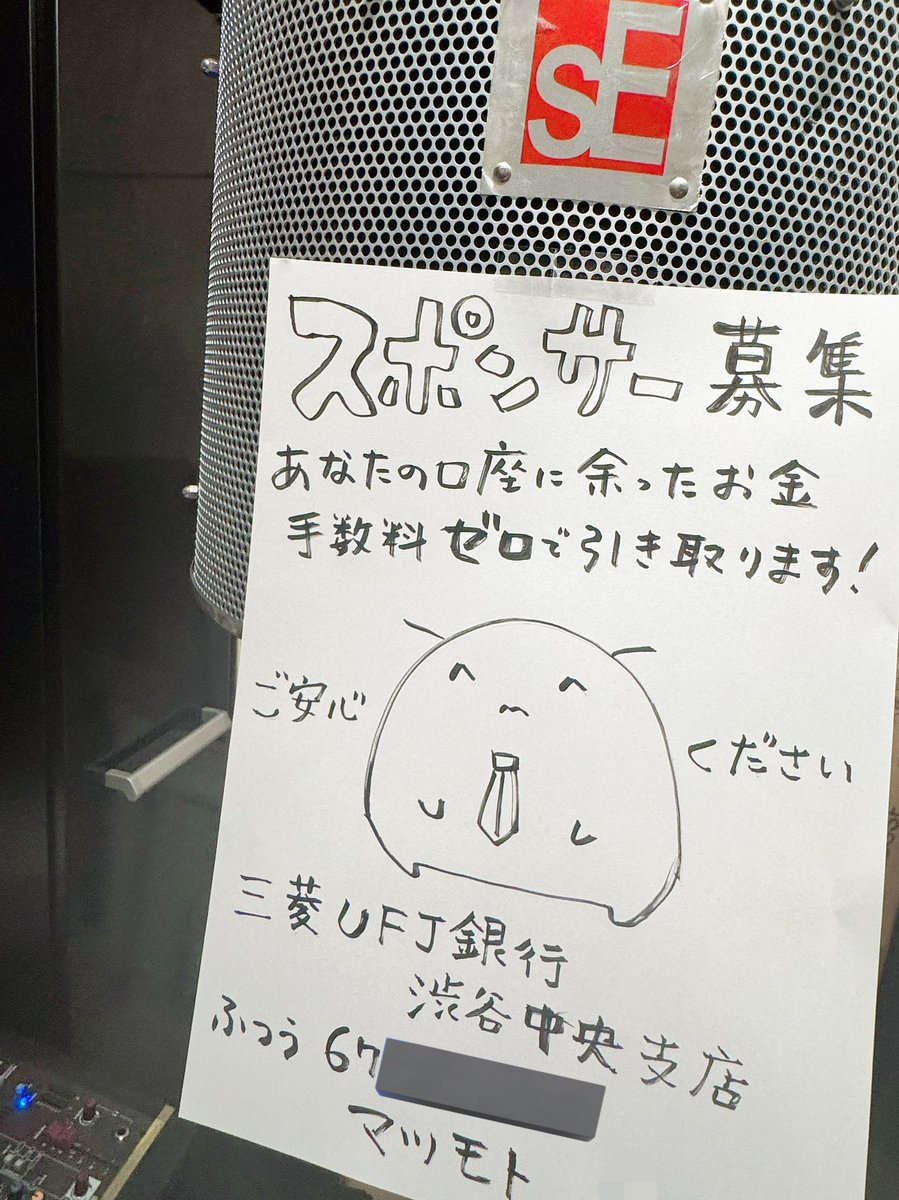 sE
スポンサー募集
あなたの口座に余ったお金
手数料ゼロで引き取ります!
ご安心
ください
三菱UFJ銀行
渋谷中央支店
ふつう 67
マツモト